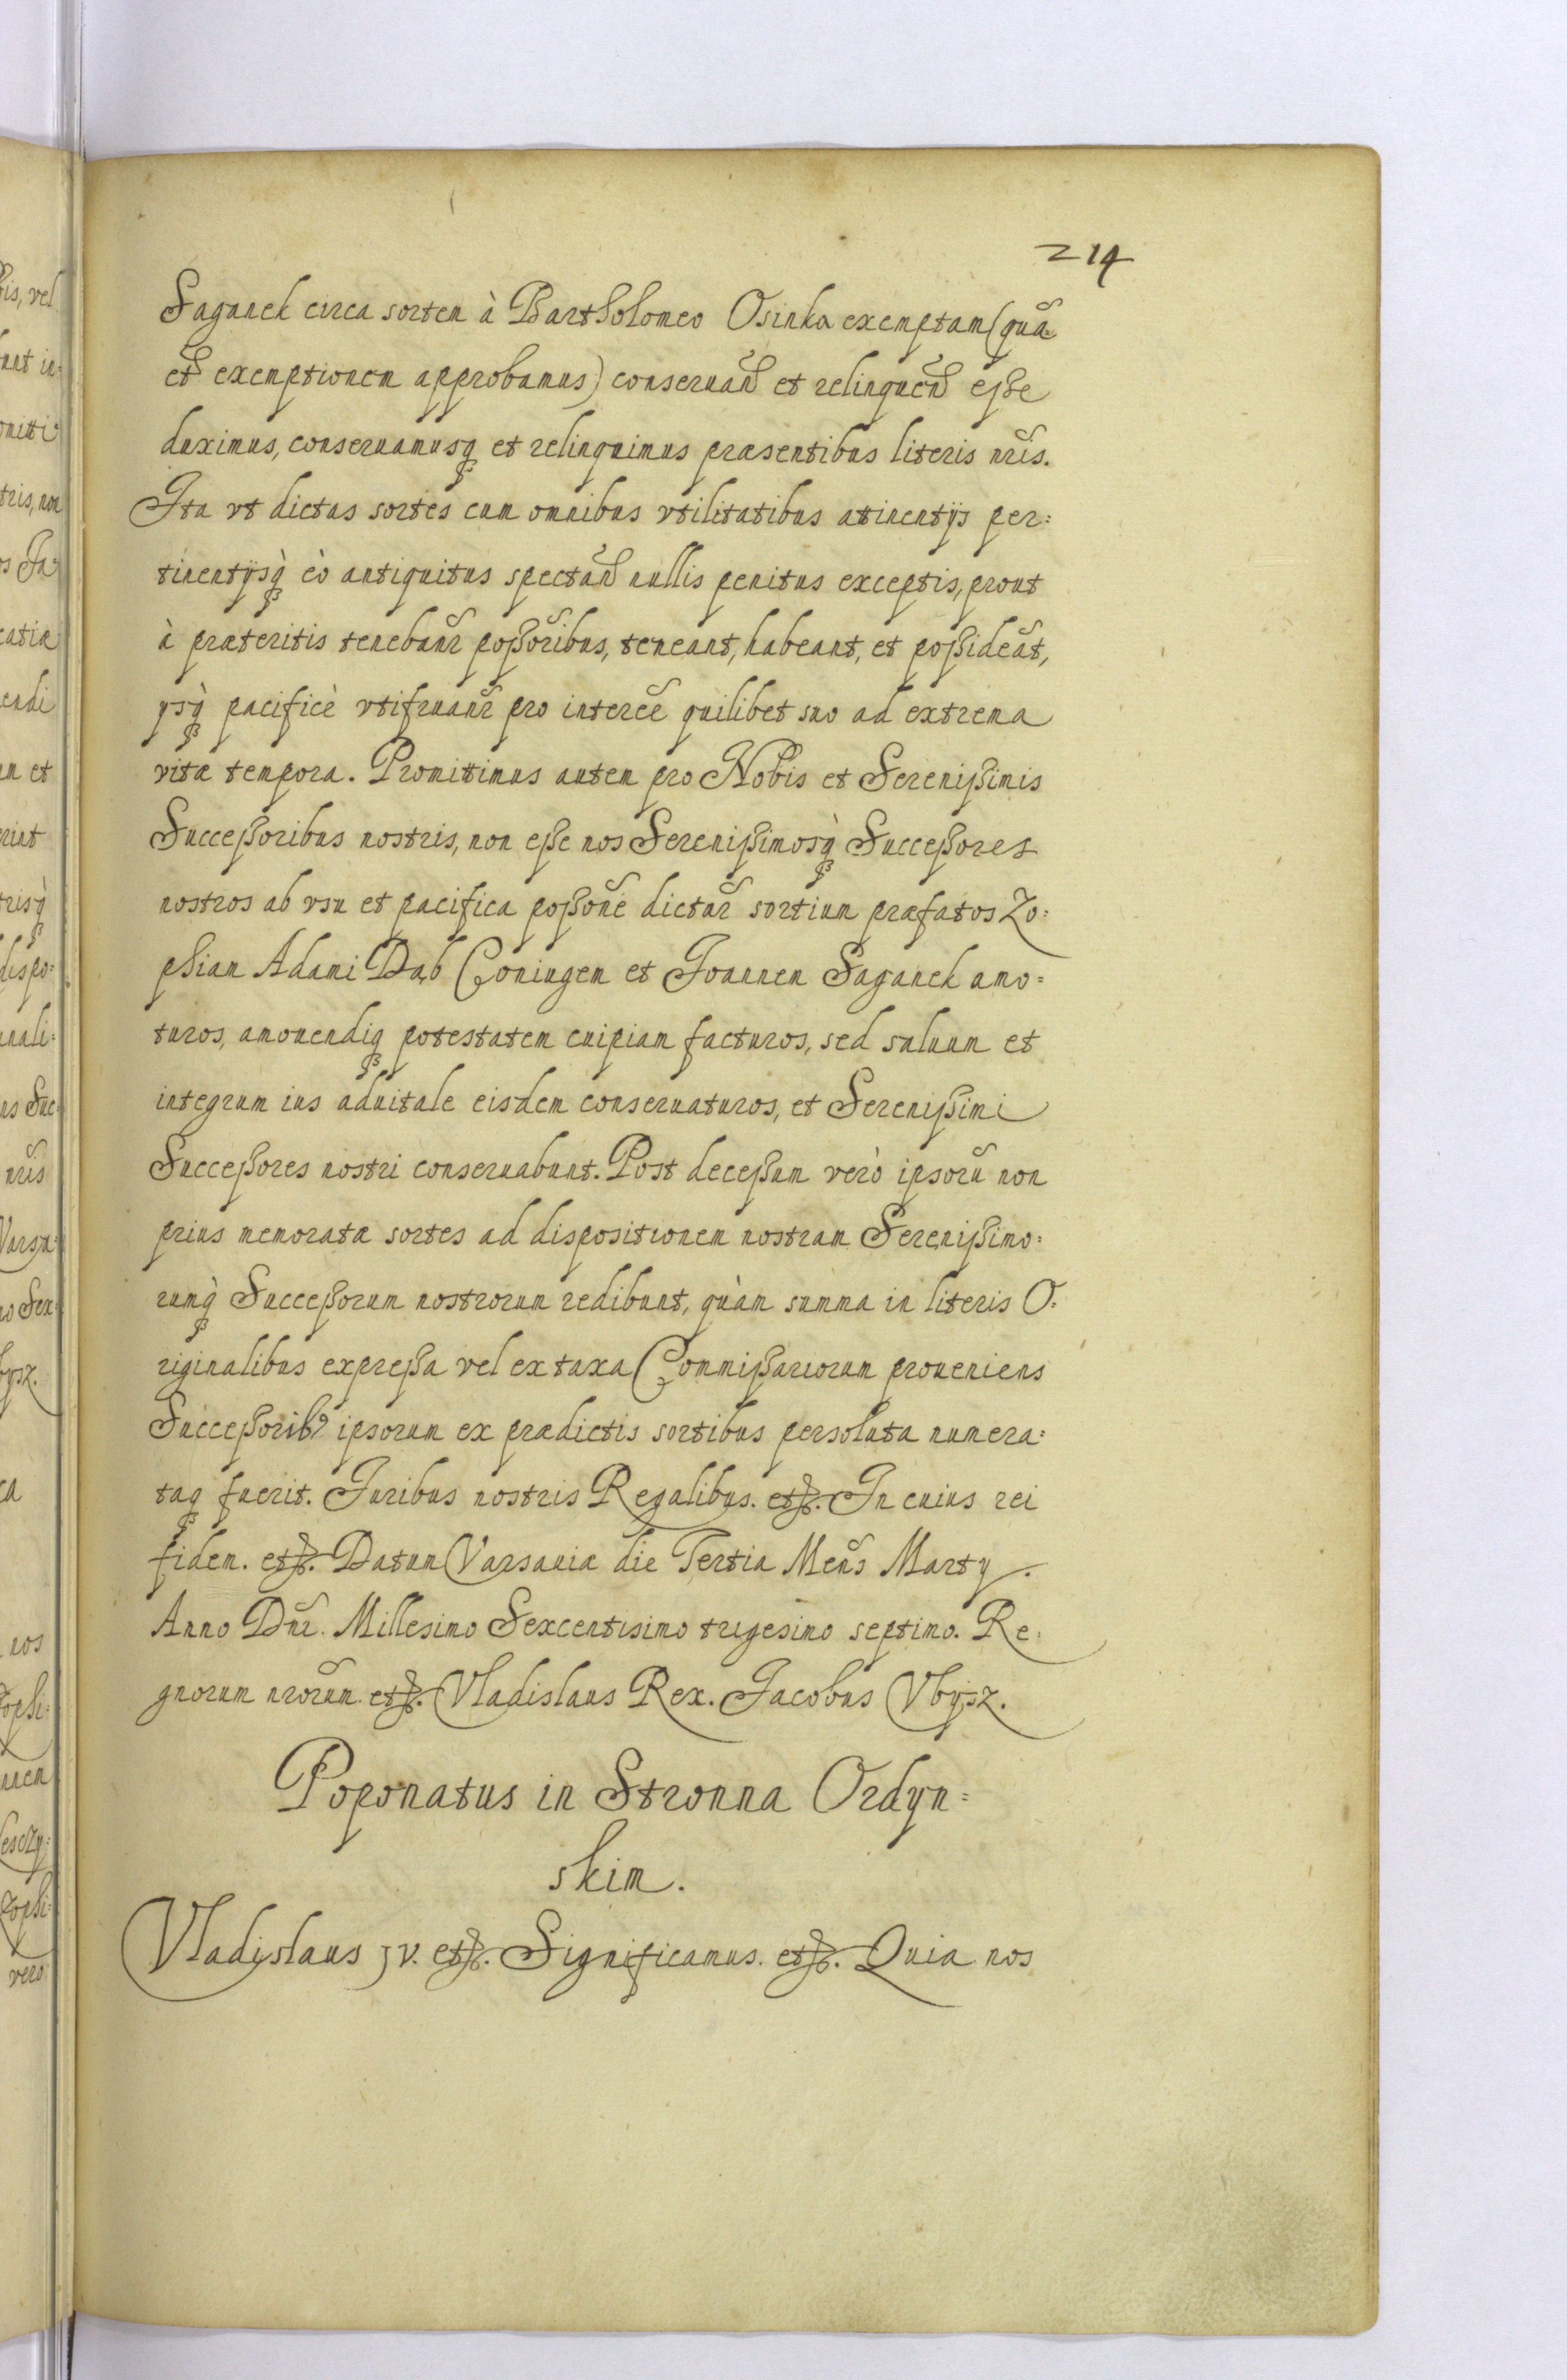 214
Saganek circa sortem à Bartholomeo Osinka exemptam (quã
et exemptionem approbamus) conseruañd et relinqueñd eße
duximus, conseruamusq́ et relinquimus præsentibus literis nr̃is.
Ita vt dictas sortes cum omnibus vtilitatibus atinentijs per=
tinentijsq́ eò antiquitus spectañd nullis penitus exceptis, prout
à præteritis tenebañr poßoribus, teneant, habeant, et poßideãt,
ysq́ pacificè vtifruañr pro intereẽ quilibet suo ad extrema
vitæ tempora. Promittimus autem pro Nobis et Serenißimis
Succeßoribus nostris, non eße nos Serenißimosq́ Succeßores
nostros ab vsu et pacifica poßoñe dictar̃ sortium præfatos Zo=
phiam Adami Dąb Coniugem et Joannem Saganek amo=
turos, amouendiq́ potestatem cuipiam facturos, sed saluum et
integrum ius aduitale eisdem conseruaturos, et Serenißimi
Succeßores nostri conseruabunt. Post deceßum verò ipsorũ non
prius memoratæ sortes ad dispositionem nostram Serenißimo=
rumq́ Succeßorum nostrorum redibunt, quàm summa in literis O=
riginalibus expreßa vel ex taxa Commißariorum proueniens
Succeßorib9 ipsorum ex prædictis sortibus persoluta numera=
taq́ fuerit. Juribus nostris Regalibus. etc. In cuius rei
fidem. etc. Datum Varsauiæ die Tertia Meñs Martÿ.
Anno Dñi. Millesimo Sexcentisimo trigesimo septimo. Re=
gnorum nr̃orum. etc. Vladislaus Rex. Jacobus Vbÿsz.
Poponatus in Stronna Ordyn=
skim.
Vladislaus IV. etc. Significamus. etc. Quia nos